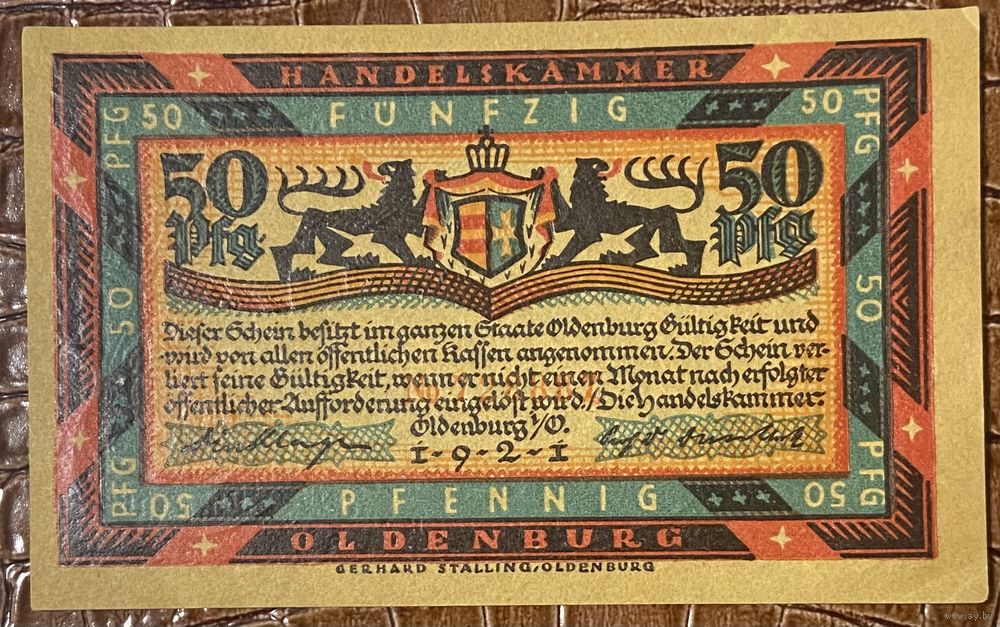 HANDELSKAMMER
FÜNFZIG
50 50
PFG PFG
50 50
Pfg Pfg
50 50
Dieser Schein besitzt im ganzen Staate Oldenburg Gültigkeit und
wird von allen öffentlichen Kassen angenommen. Der Schein ver-
liert seine Gültigkeit, wenn er nicht einen Monat nach erfolgter
öffentlicher Aufforderung eingelöst wird. / Die Handelskammer:
Oldenburg i/O.
1-9-2-1
PFG PFG
50 50
PFENNIG
OLDENBURG
GERHARD STALLING, OLDENBURG
www.ay.by